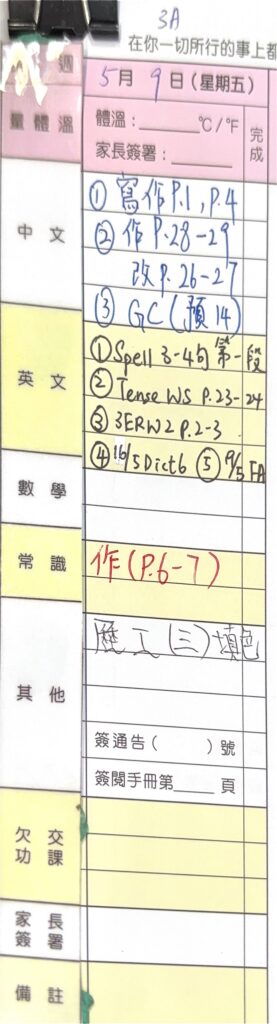 3A
在你一切所行的事上都
週
5月 9日(星期五)
量體溫
體溫:______°C/°F
家長簽署:______
完成
中文
① 寫作P.1,P.4
② 作P.28-29
改P.26-27
③ GC(預14)
英文
① Spell 3-4句 第一段
② Tense WS P.23-24
③ 3ERW2 P.2-3
④ 16/5 Dict6 ⑤ 9/5 FA
數學
常識
作(P.6-7)
其他
歷工(三)填色
簽通告( )號
簽閱手冊第____頁
欠交功課
家長簽署
備註